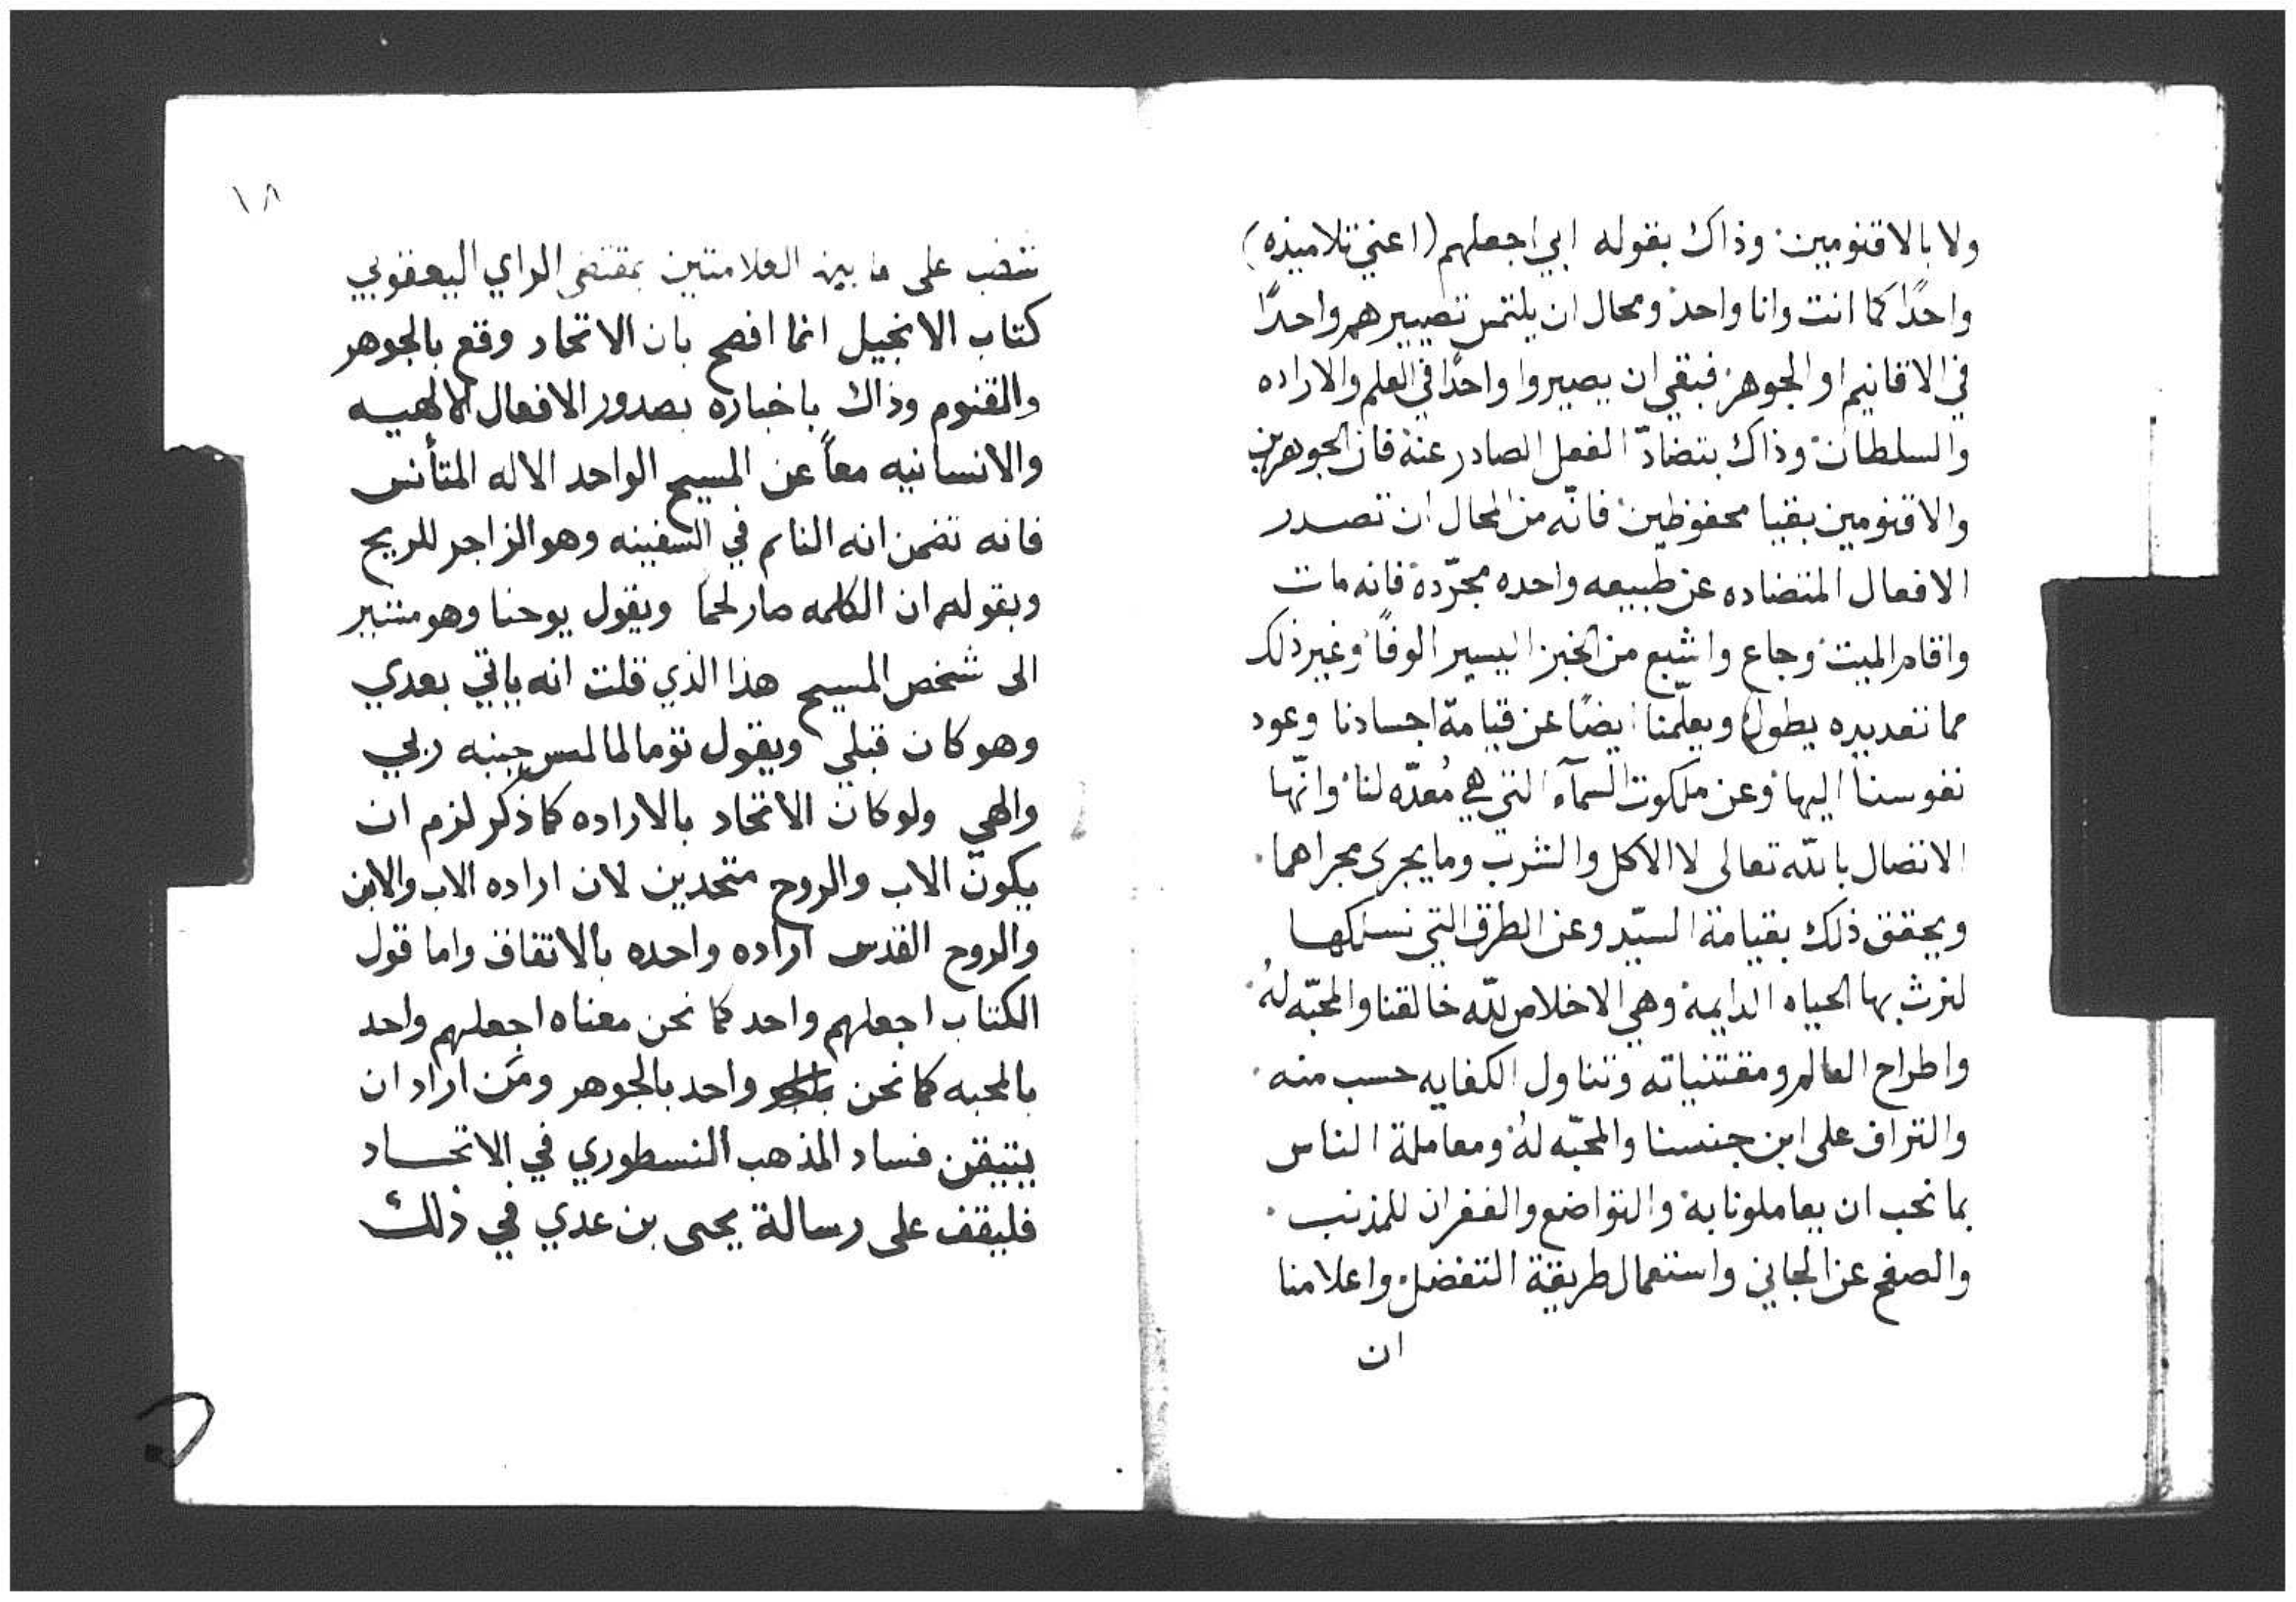 ولا بالاقنومين وذاك بقوله ابي اجعلهم (اعني تلاميذه)
واحدًا كما انت وانا واحد ومحال ان يلتمس تصييرهم واحدًا
في الاقانيم او الجوهر فبقي ان يصيروا واحدًا في العلم والاراده
والسلطان وذاك بتضادّ الفعل الصادر عنه فان الجوهرين
والاقنومين بقيا محفوظين فانّه من المحال ان تصدر
الافعال المتضاده عن طبيعه واحده مجرّدة فانه مات
واقام الميت وجاع واشبع من الخبز اليسير الوفًا وغير ذلك
مما تعديده يطول ويعلّمنا ايضًا عن قيامة اجسادنا وعود
نفوسنا اليها وعن ملكوت السمآء التي هي مُعدّه لنا وانّها
الاتصال بالله تعالى لا الاكل والشرب وما يجرى مجراهما
ويحقق ذلك بقيامة السيّد وعن الطرق التي نسلكها
لنرث بها الحياه الدايمة وهي الاخلاص لله خالقنا والمحبّه لهُ
واطراح العالم ومقتنياته وتناول الكفايه حسب منه
والتراف على ابن جنسنا والمحبّه لهُ ومعاملة الناس
بما نحب ان يعاملونا به والتواضع والغفران للمذنب
والصفح عن الجاني واستعمال طريقة التفضل واعلامنا
ان
١٨
على ما بين العلامتين بمقتضى الراي اليعقوبي
كتاب الانجيل انما افصح بان الاتحاد وقع بالجوهر
والقنوم وذاك باخباره بصدور الافعال الالهيه
والانسانيه معاً عن المسيح الواحد الاله المتأنس
فانه تضمن انه النايم في السفينه وهو الزاجر للريح
وبقولهم ان الكلمه صار لحما ويقول يوحنا وهو مشير
الى شخص المسيح هذا الذي قلت انه ياتي بعدي
وهو كان قبلي ويقول توما لما لمس جنبه ربي
والهي ولو كان الاتحاد بالاراده كما ذكر لزم ان
يكون الاب والروح متحدين لان اراده الاب والابن
والروح القدس اراده واحده بالاتفاق واما قول
الكتاب اجعلهم واحد كما نحن معناه اجعلهم واحد
بالمحبه كما نحن واحد بالجوهر ومَن اراد ان
يتيقن فساد المذهب النسطوري في الاتحاد
فليقف على رسالة يحيى بن عدي في ذلك